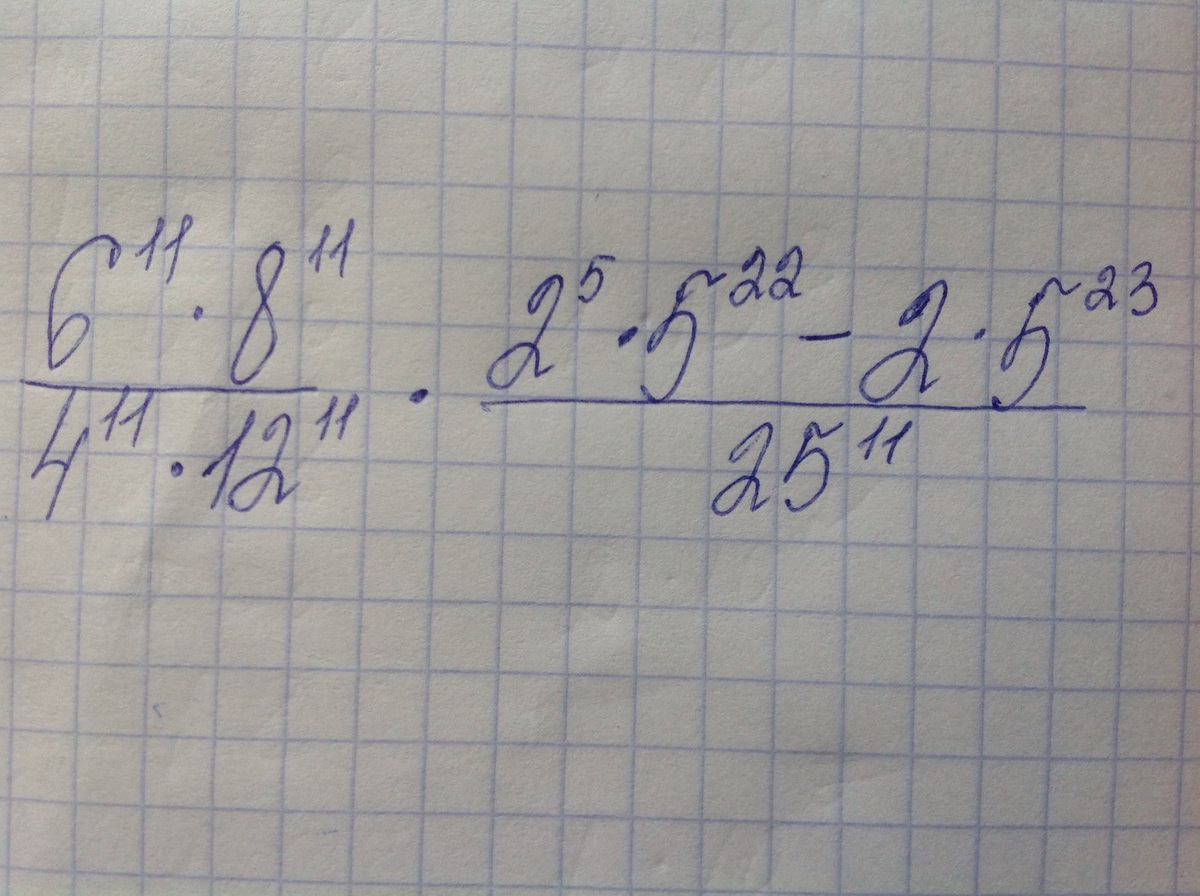 6^11 · 8^11 / 4^11 · 12^11 · 2^5 · 5^22 − 2 · 5^23 / 25^11